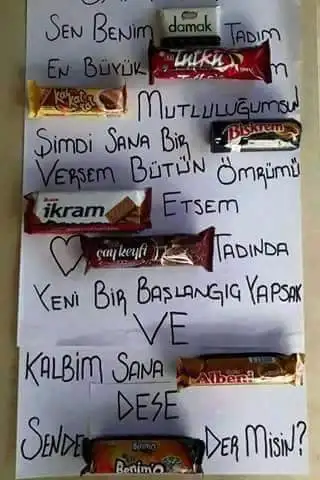 SEN BENİM damak TADIM
EN BÜYÜK Tutku M
MUTLULUĞUMSUN
ŞİMDİ SANA BİR Biskrem
VERSEM BÜTÜN ÖMRÜMÜ
ikram ETSEM
çay keyfi TADINDA
YENİ BİR BAŞLANGIÇ YAPSAK
VE
KALBİM SANA Alberni
DESE
SENDE Benimo Benim'O DER MİSİN?